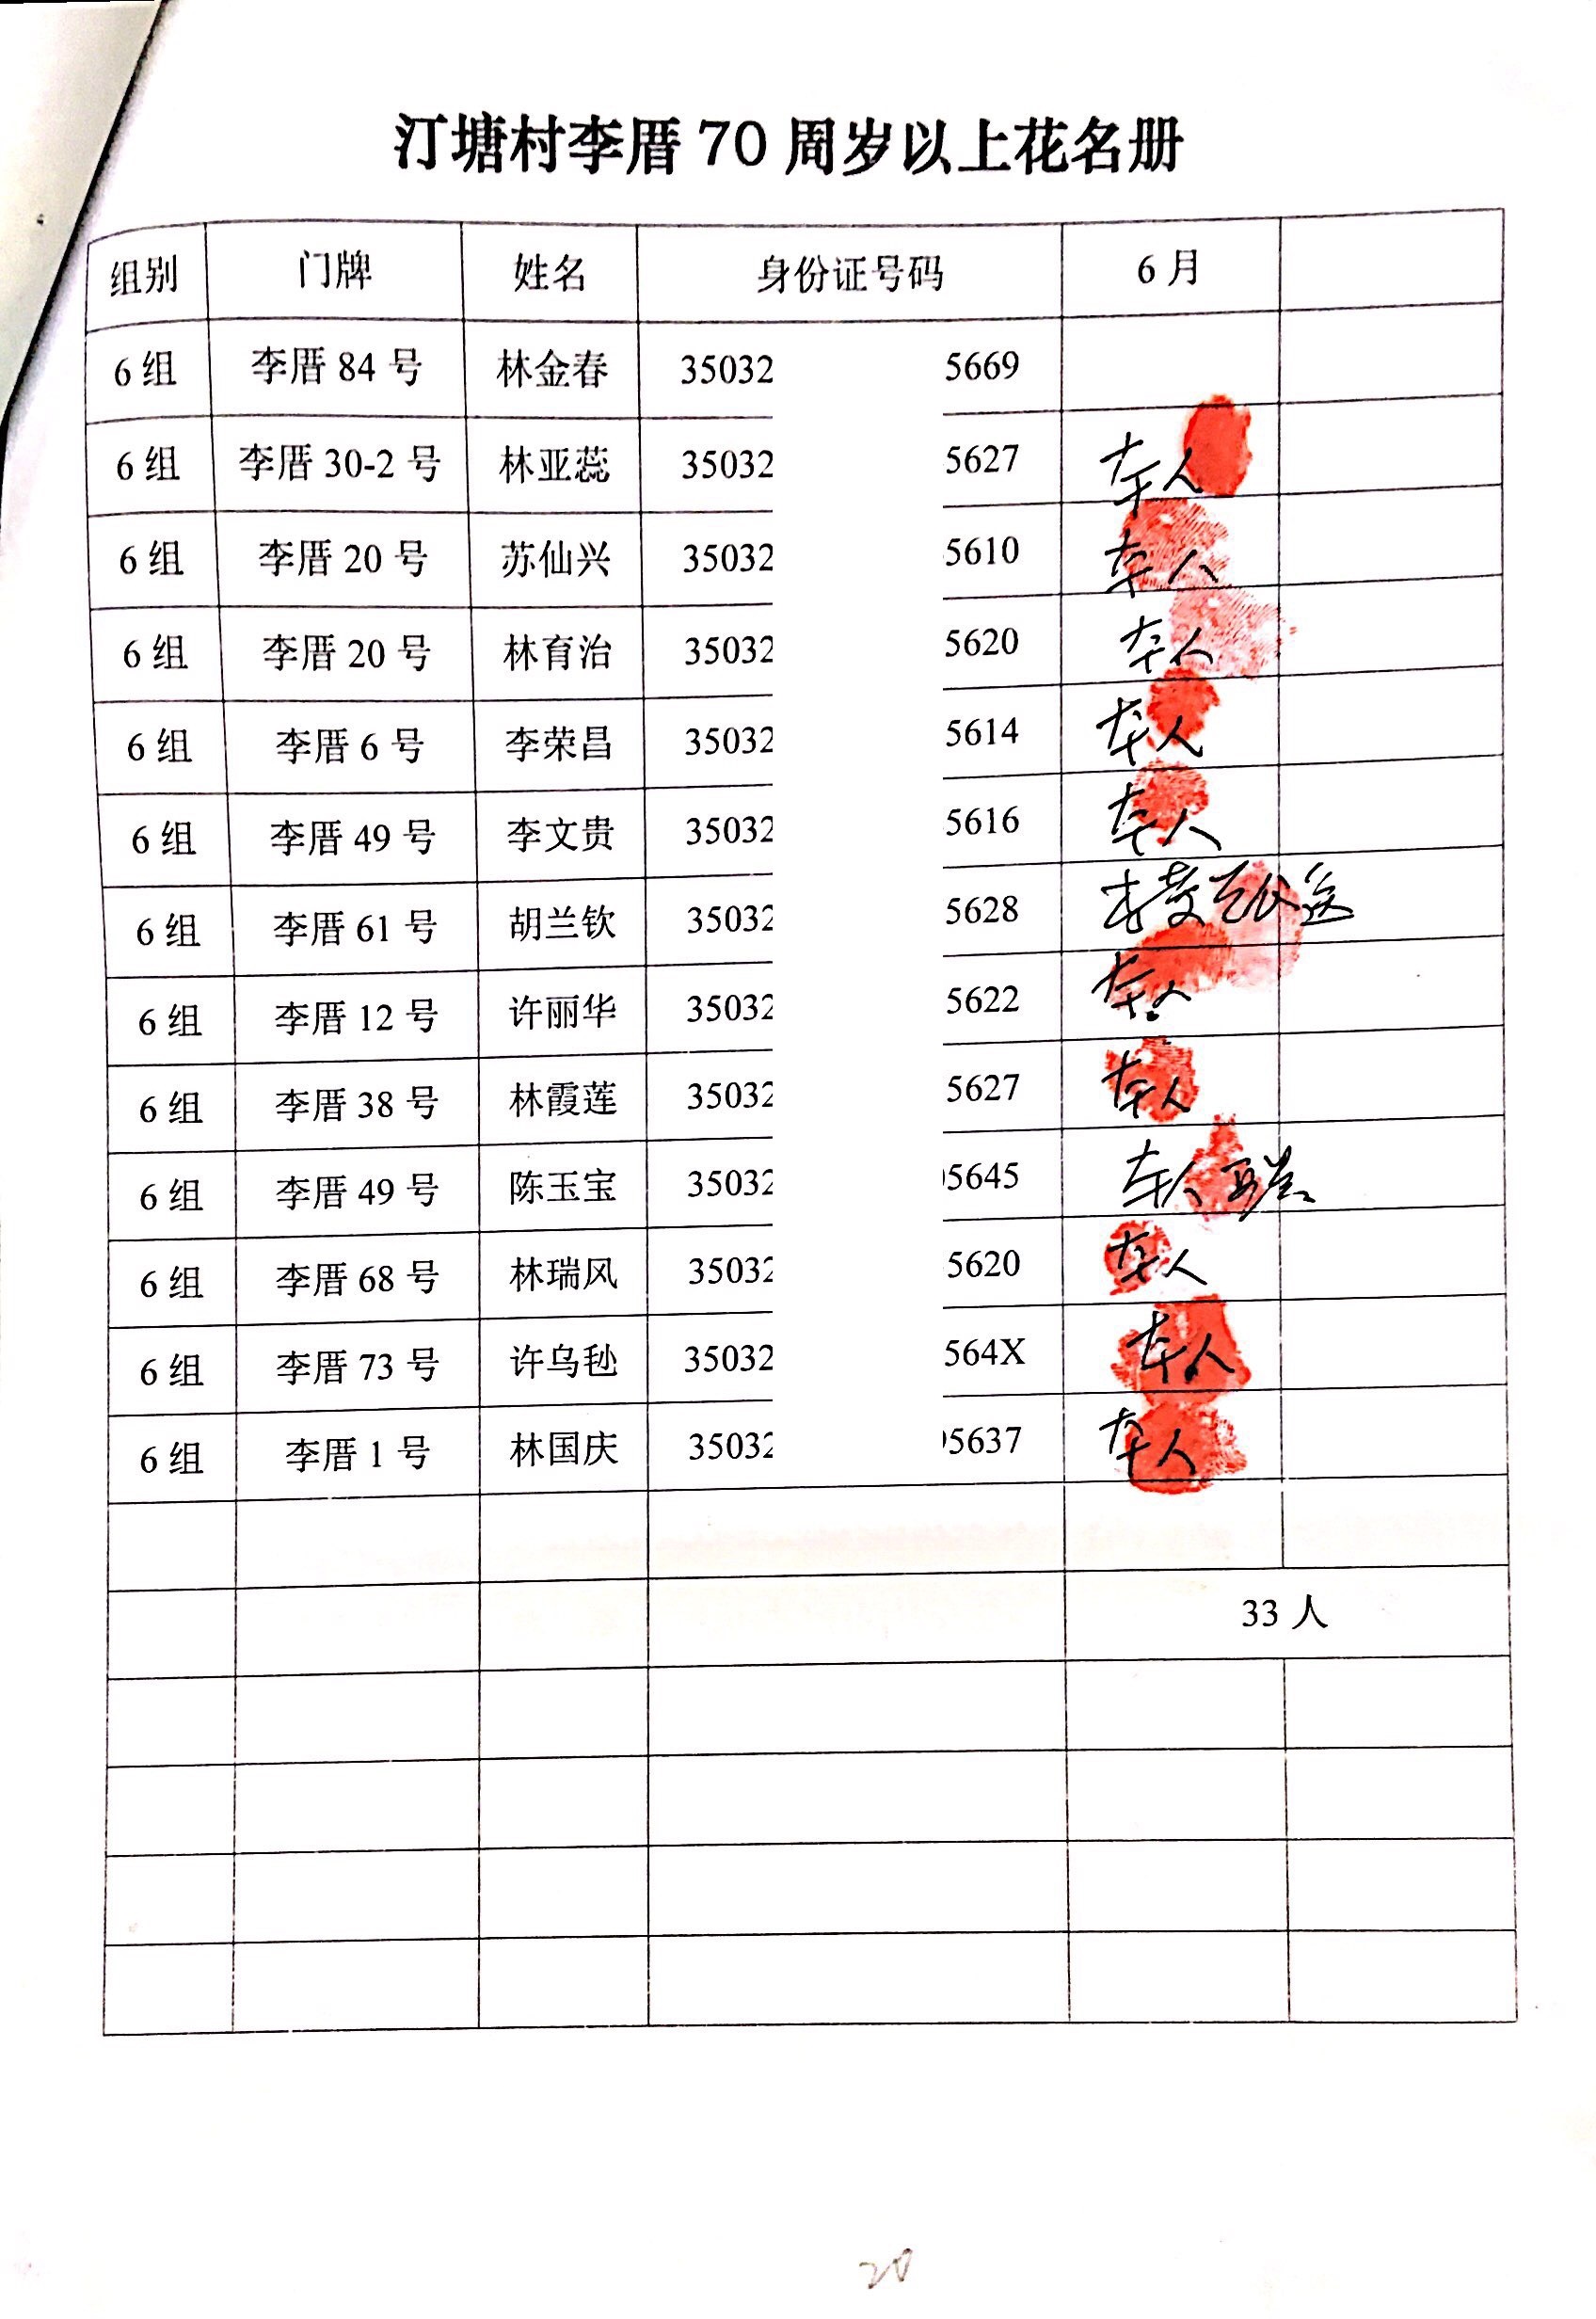 汀塘村李厝 70 周岁以上花名册
组别 门牌 姓名 身份证号码 6 月
6 组 李厝 84 号 林金春 35032 5669
6 组 李厝 30-2 号 林亚蕊 35032 5627 本人
6 组 李厝 20 号 苏仙兴 35032 5610 本人
6 组 李厝 20 号 林育治 35032 5620 本人
6 组 李厝 6 号 李荣昌 35032 5614 本人
6 组 李厝 49 号 李文贵 35032 5616 本人
6 组 李厝 61 号 胡兰钦 35032 5628
6 组 李厝 12 号 许丽华 35032 5622 本人
6 组 李厝 38 号 林霞莲 35032 5627 本人
6 组 李厝 49 号 陈玉宝 35032 5645 本人
6 组 李厝 68 号 林瑞风 35032 5620 本人
6 组 李厝 73 号 许乌毜 35032 564X 本人
6 组 李厝 1 号 林国庆 35032 5637 本人
33 人
20